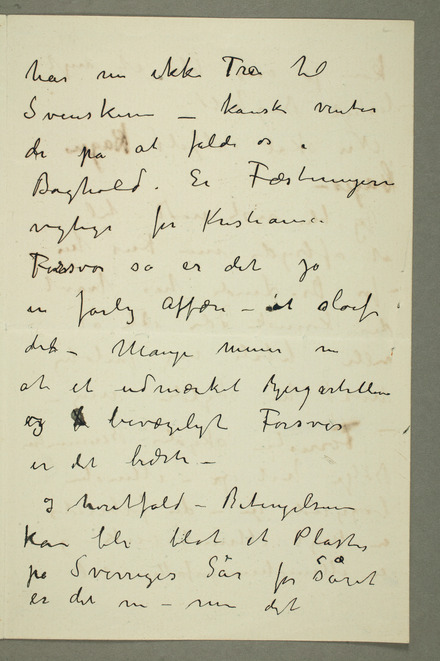 har nu ikke Tro til
Svenskerne – kanske venter
de på at falde os i
Baghold. Er Fæstningerne
vigtige for Kristiania
Forsvar så er det jo
en farlig Affære – at sløife
dem – Mange mener nu
at et udmærket Bjergartilleri
og bevægeligt Forsvar
er det bedste –
I hvert fald – Betingelserne
kan bli blot et Plaster
på Sverriges Sår for såret
er det nu – men dyt